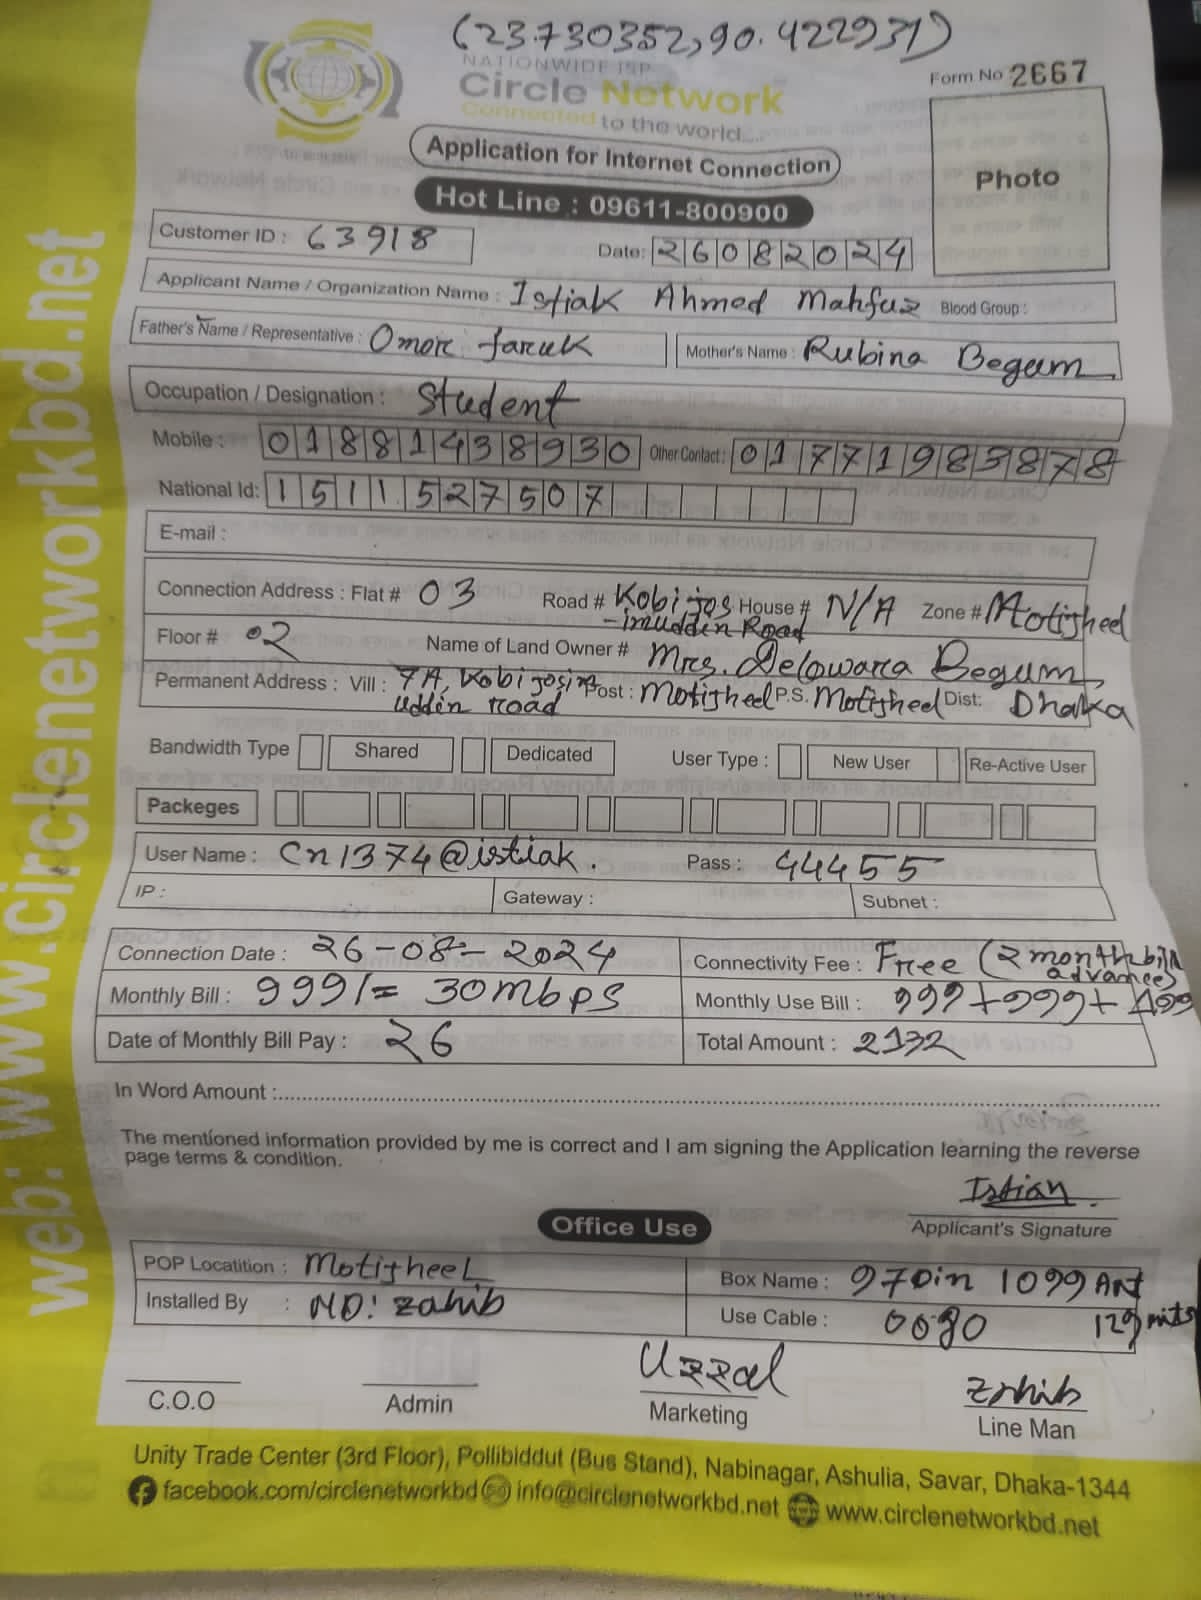 (23.730352,90.422931)
NATIONWIDE ISP
Circle Network
Connected to the world....
Form No 2667
Application for Internet Connection
Photo
Hot Line : 09611-800900
Customer ID : 63918
Date: 26082024
Applicant Name / Organization Name : Istiak Ahmed Mahfuz Blood Group :
Father's Name / Representative : Omor faruk Mother's Name : Rubina Begum
Occupation / Designation : Student
Mobile : 01881438930 Other Contact : 01771983878
National Id: 1511527507
E-mail :
Connection Address : Flat # 03 Road # Kobi jos House # N/A Zone # Motijheel
-imuddin Road
Floor # 02 Name of Land Owner # Mrs. Delowara Begum
Permanent Address : Vill : 7A, Kobi josim Post : Motijheel P.S. Motijheel Dist: Dhaka
uddin road
Bandwidth Type Shared Dedicated User Type : New User Re-Active User
Packeges
User Name : Cn1374@istiak. Pass : 44455
IP : Gateway : Subnet :
Connection Date : 26-08-2024 Connectivity Fee : Free (2 month bill
advance)
Monthly Bill : 999/= 30mbps Monthly Use Bill : 999+999+
Date of Monthly Bill Pay : 26 Total Amount : 2132
In Word Amount :
The mentioned information provided by me is correct and I am signing the Application learning the reverse
page terms & condition.
Istiak
Applicant's Signature
Office Use
POP Locatition : Motijheel Box Name :
Installed By : MD: Zahib Use Cable :
Uzzal Zahib
C.O.O Admin Marketing Line Man
Unity Trade Center (3rd Floor), Pollibiddut (Bus Stand), Nabinagar, Ashulia, Savar, Dhaka-1344
facebook.com/circlenetworkbd info@circlenetworkbd.net www.circlenetworkbd.net
web: www.circlenetworkbd.net